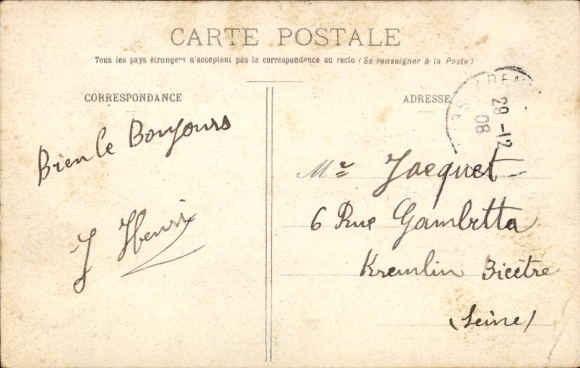 CARTE POSTALE
Tous les pays étrangers n'acceptent pas la correspondance au recto (Se renseigner à la Poste)
CORRESPONDANCE
ADRESSE
29-12
08
Bien le Bonjours
J Henri
Mr Jacquet
6 Rue Gambetta
Kremlin Bicêtre
(Seine)